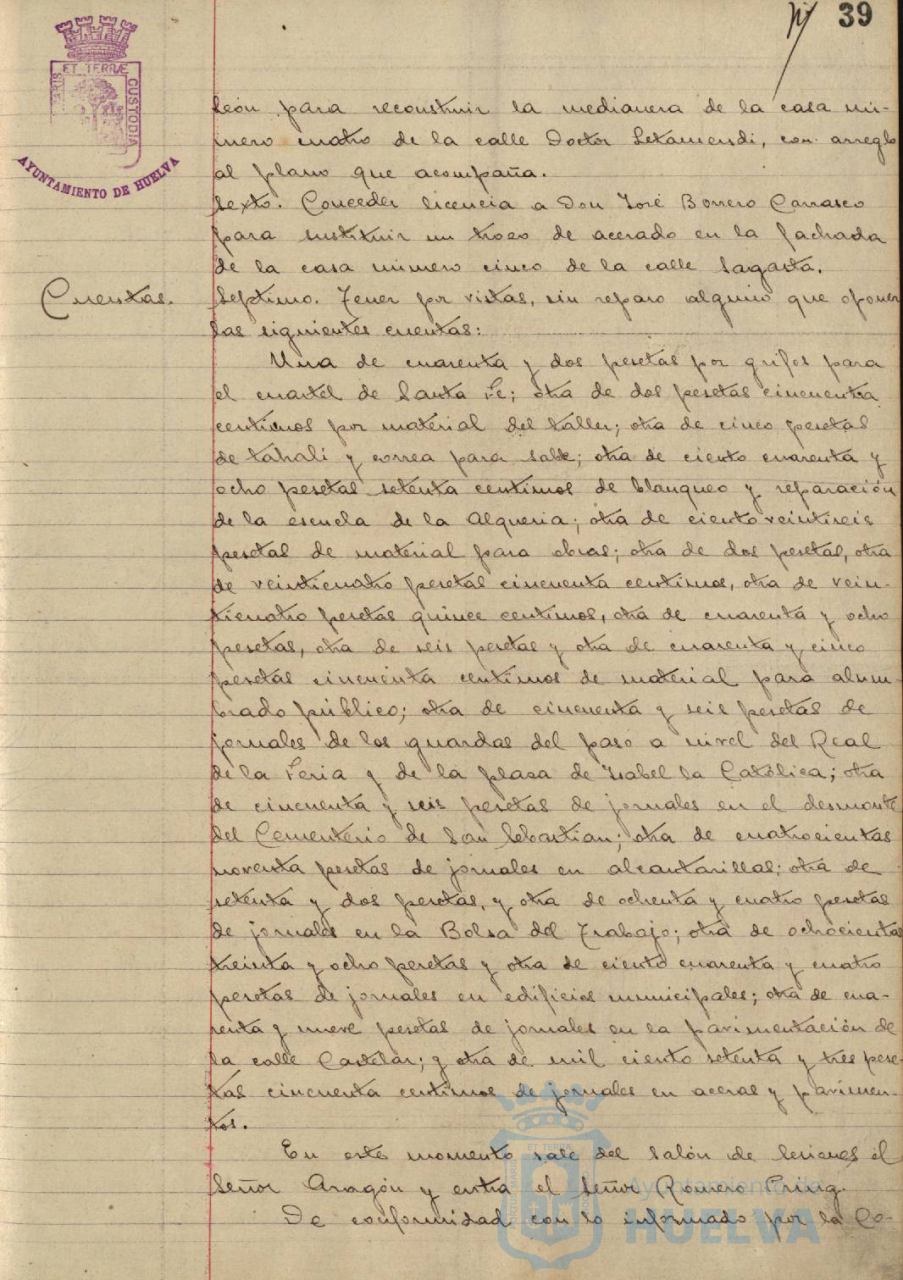 39
ET TERRÆ
PARIS
CUSTODIA
AYUNTAMIENTO DE HUELVA
León para reconstruir la medianera de la casa nú-
mero cuatro de la calle Doctor Letamendi, con arreglo
al plano que acompaña.
Sexto. Conceder licencia a Don José Borrero Carrasco
para sustituir un trozo de acerado en la fachada
de la casa número cinco de la calle Sagasta.
Cuentas.
Septimo. Tener por vistas, sin reparo alguno que oponer
las siguientes cuentas:
Una de cuarenta y dos pesetas por grifos para
el cuartel de Santa Fe; otra de dos pesetas cincuenta
centimos por material del taller; otra de cinco pesetas
de tahali y correa para sable; otra de ciento cuarenta y
ocho pesetas setenta centimos de blanqueo y reparación
de la escuela de la Alqueria; otra de ciento veintiseis
pesetas de material para obras; otra de dos pesetas, otra
de veinticuatro pesetas cincuenta centimos, otra de vein-
ticuatro pesetas quince centimos, otra de cuarenta y ocho
pesetas, otra de seis pesetas y otra de cuarenta y cinco
pesetas cincuenta centimos de material para alum-
brado público; otra de cincuenta y seis pesetas de
jornales de los guardas del paso a nivel del Real
de la Feria y de la plaza de Isabel la Católica; otra
de cincuenta y seis pesetas de jornales en el desmonte
del Cementerio de San Sebastian; otra de cuatrocientas
noventa pesetas de jornales en alcantarillas; otra de
setenta y dos pesetas, y otra de ochenta y cuatro pesetas
de jornales en la Bolsa del Trabajo; otra de ochocientas
treinta y ocho pesetas y otra de ciento cuarenta y cuatro
pesetas de jornales en edificios municipales; otra de cua-
renta y nueve pesetas de jornales en la pavimentación de
la calle Castelar; y otra de mil ciento setenta y tres pese-
tas cincuenta centimos de jornales en aceras y pavimen-
tos.
En este momento sale del salón de sesiones el
Señor Aragón y entra el Señor Romero Pring.
De conformidad con lo informado por la Co-
Ayuntamiento de
HUELVA